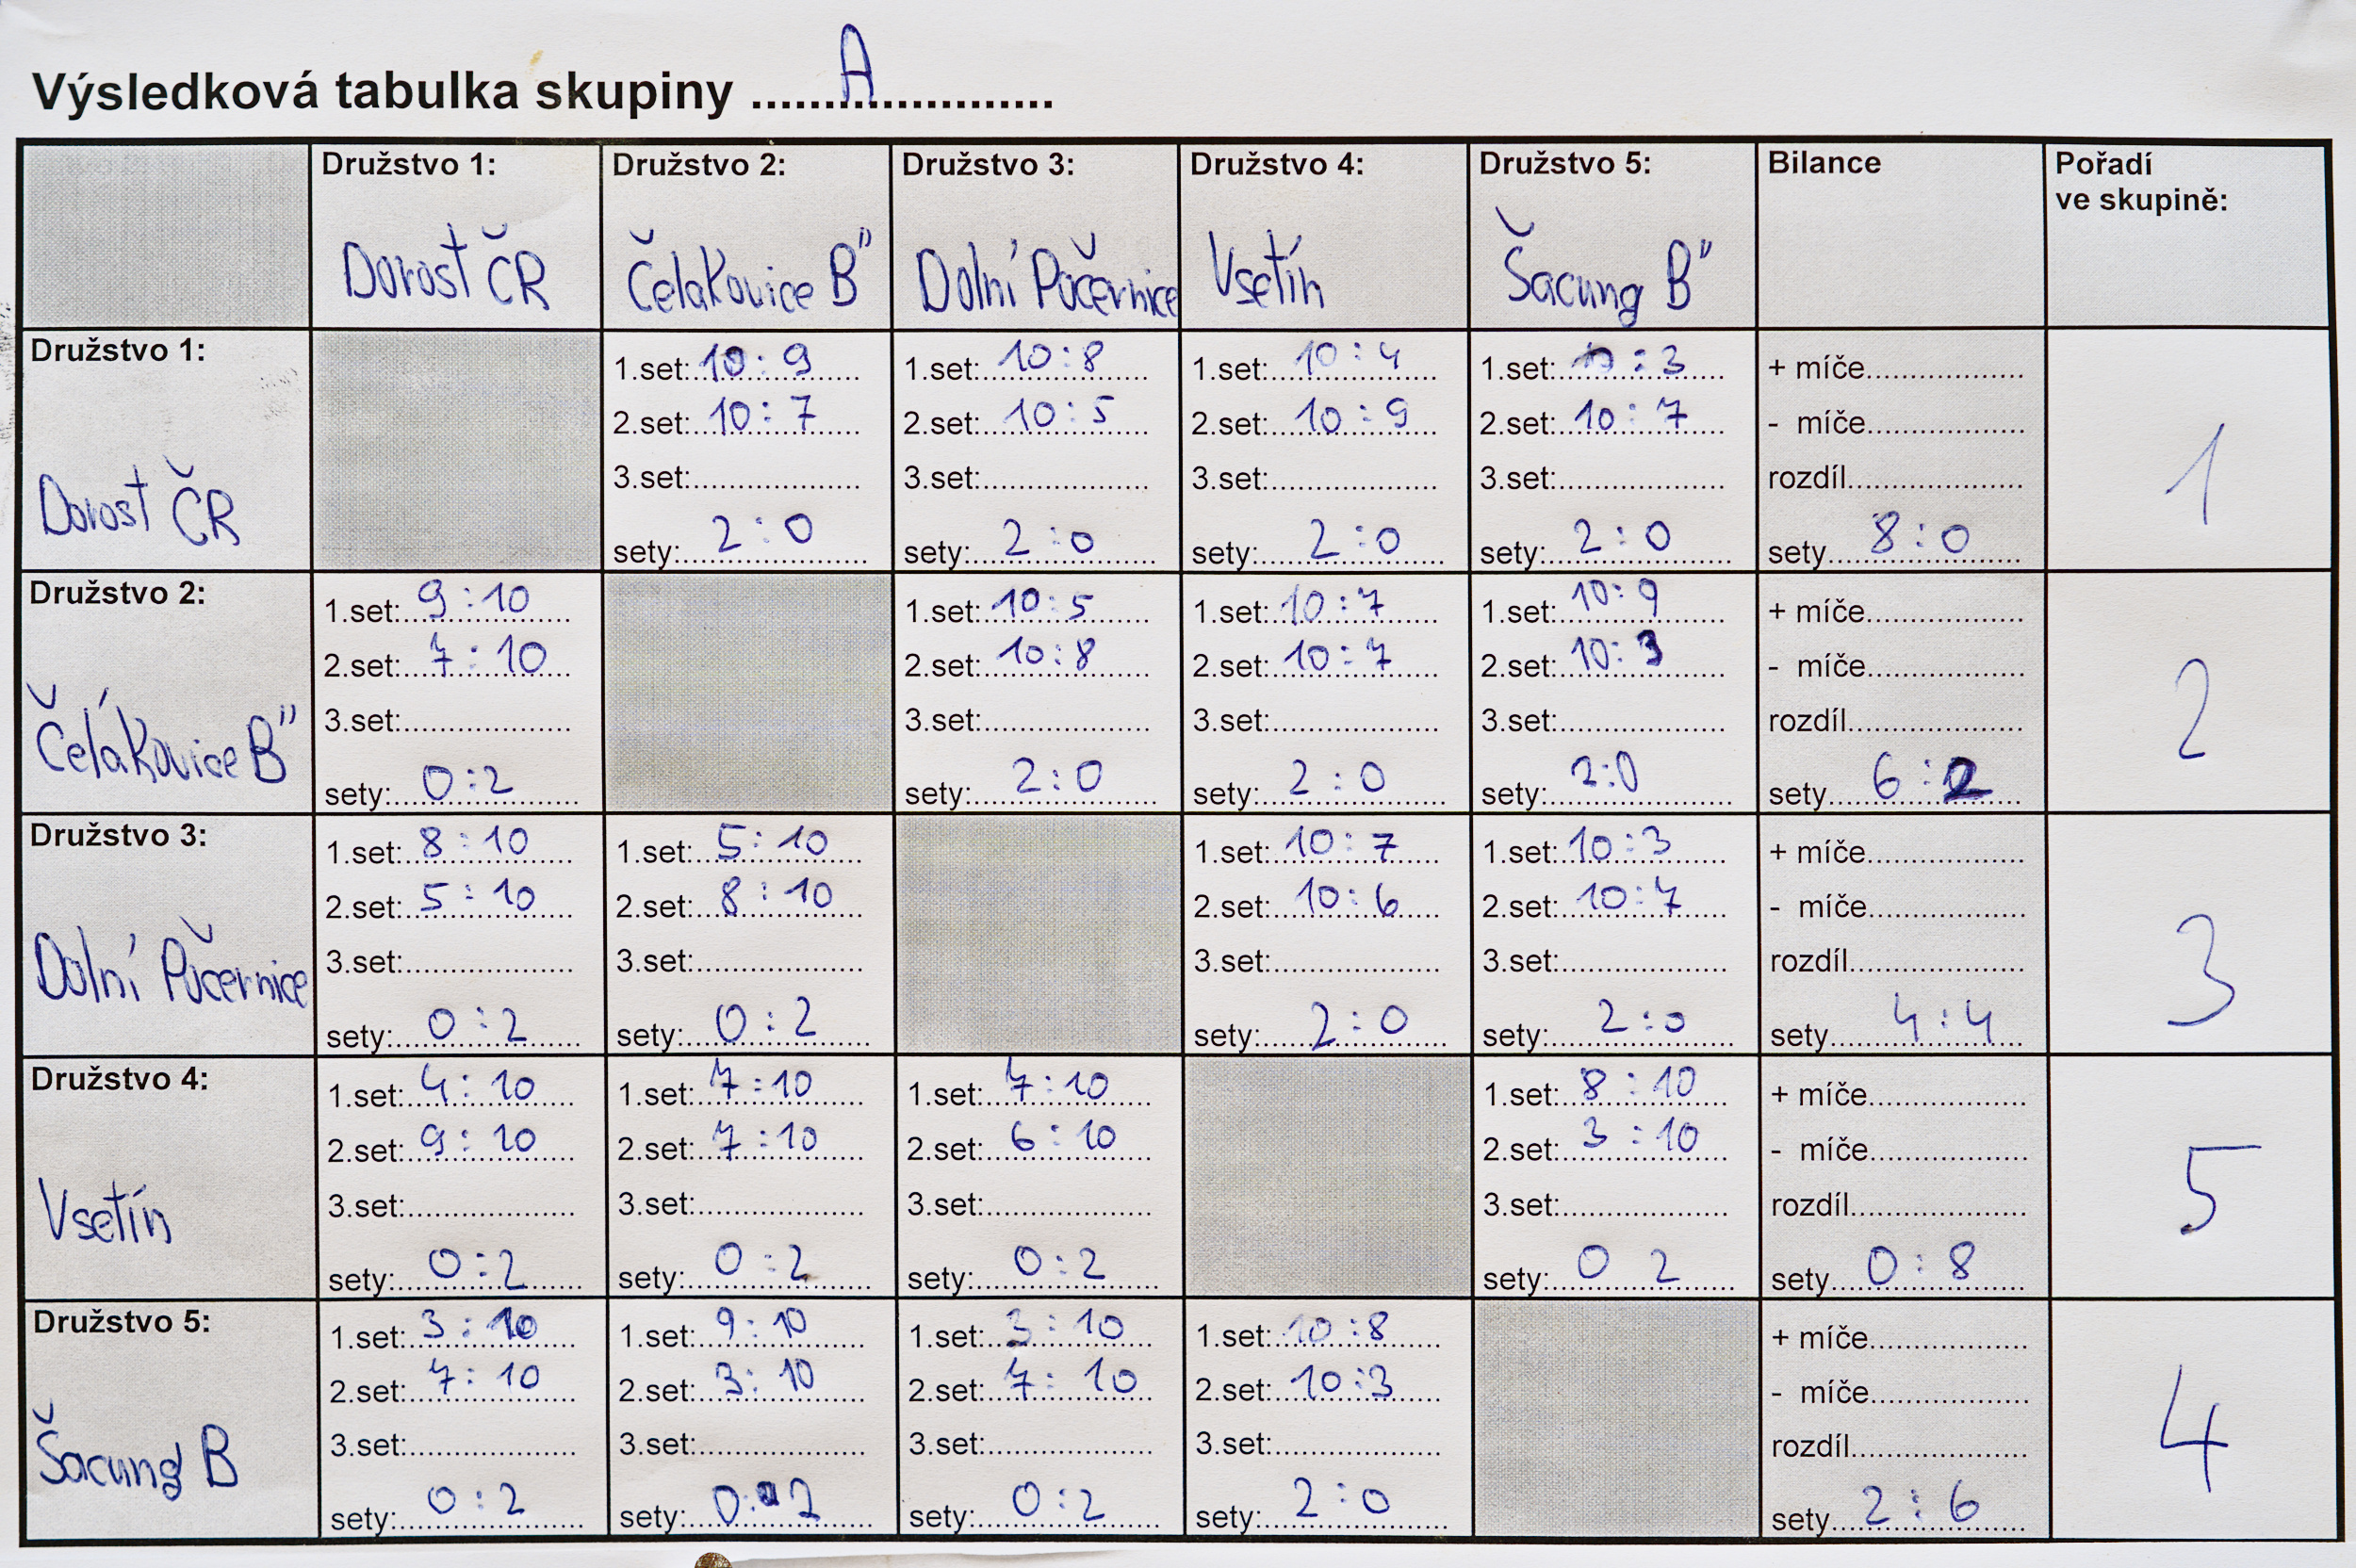 Výsledková tabulka skupiny ..... A .....
Družstvo 1: Družstvo 2: Družstvo 3: Družstvo 4: Družstvo 5: Bilance Pořadí
ve skupině:
Dorost ČR Čelákovice B" Dolní Počernice Vsetín Šacung B"
Družstvo 1: 1.set: 10:9 1.set: 10:8 1.set: 10:4 1.set: 10:3 + míče
2.set: 10:7 2.set: 10:5 2.set: 10:9 2.set: 10:7 - míče
3.set: 3.set: 3.set: 3.set: rozdíl
Dorost ČR sety: 2:0 sety: 2:0 sety: 2:0 sety: 2:0 sety 8:0 1
Družstvo 2: 1.set: 9:10 1.set: 10:5 1.set: 10:7 1.set: 10:9 + míče
2.set: 7:10 2.set: 10:8 2.set: 10:7 2.set: 10:3 - míče
3.set: 3.set: 3.set: 3.set: rozdíl
Čelákovice B" sety: 0:2 sety: 2:0 sety: 2:0 sety: 2:0 sety 6:2 2
Družstvo 3: 1.set: 8:10 1.set: 5:10 1.set: 10:7 1.set: 10:3 + míče
2.set: 5:10 2.set: 8:10 2.set: 10:6 2.set: 10:7 - míče
3.set: 3.set: 3.set: 3.set: rozdíl
Dolní Počernice sety: 0:2 sety: 0:2 sety: 2:0 sety: 2:0 sety 4:4 3
Družstvo 4: 1.set: 4:10 1.set: 7:10 1.set: 7:10 1.set: 8:10 + míče
2.set: 9:10 2.set: 7:10 2.set: 6:10 2.set: 3:10 - míče
3.set: 3.set: 3.set: 3.set: rozdíl
Vsetín sety: 0:2 sety: 0:2 sety: 0:2 sety: 0 2 sety 0:8 5
Družstvo 5: 1.set: 3:10 1.set: 9:10 1.set: 3:10 1.set: 10:8 + míče
2.set: 7:10 2.set: 3:10 2.set: 7:10 2.set: 10:3 - míče
3.set: 3.set: 3.set: 3.set: rozdíl
Šacung B sety: 0:2 sety: 0:2 sety: 0:2 sety: 2:0 sety 2:6 4